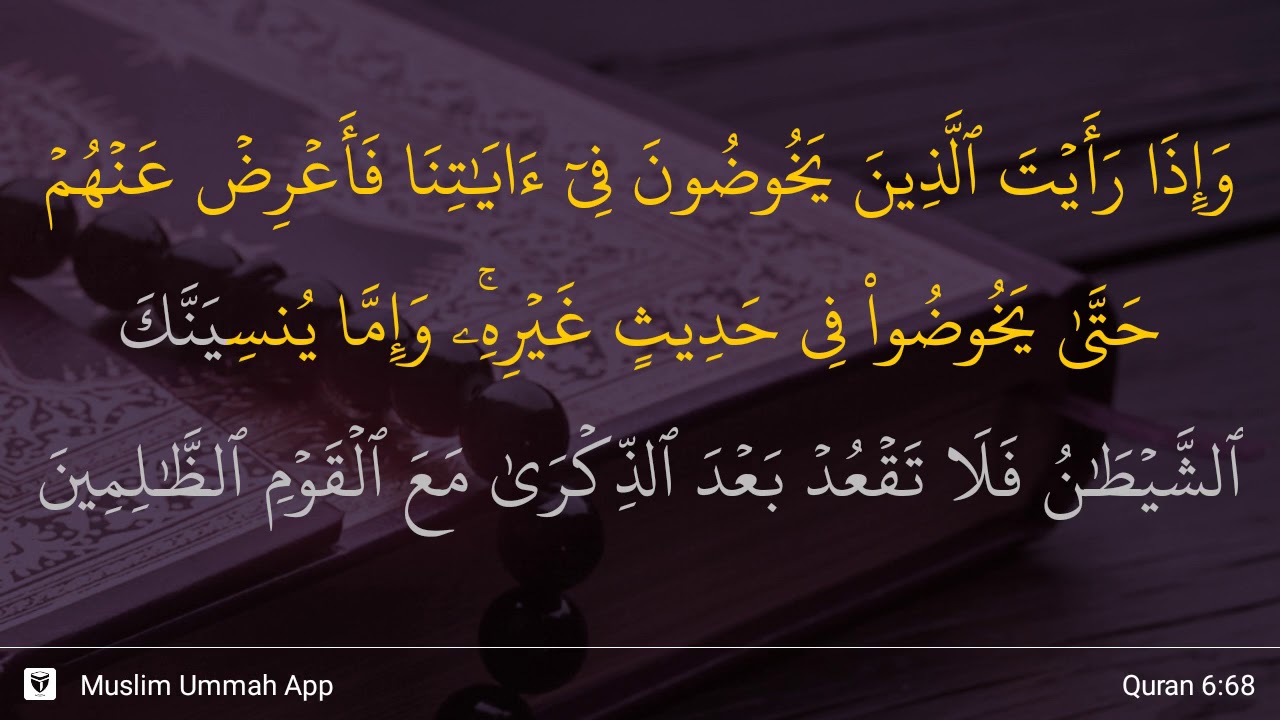 وَإِذَا رَأَيْتَ ٱلَّذِينَ يَخُوضُونَ فِىٓ ءَايَـٰتِنَا فَأَعْرِضْ عَنْهُمْ
حَتَّىٰ يَخُوضُوا۟ فِى حَدِيثٍ غَيْرِهِۦ ۚ وَإِمَّا يُنسِيَنَّكَ
ٱلشَّيْطَـٰنُ فَلَا تَقْعُدْ بَعْدَ ٱلذِّكْرَىٰ مَعَ ٱلْقَوْمِ ٱلظَّـٰلِمِينَ
Muslim Ummah App
Quran 6:68